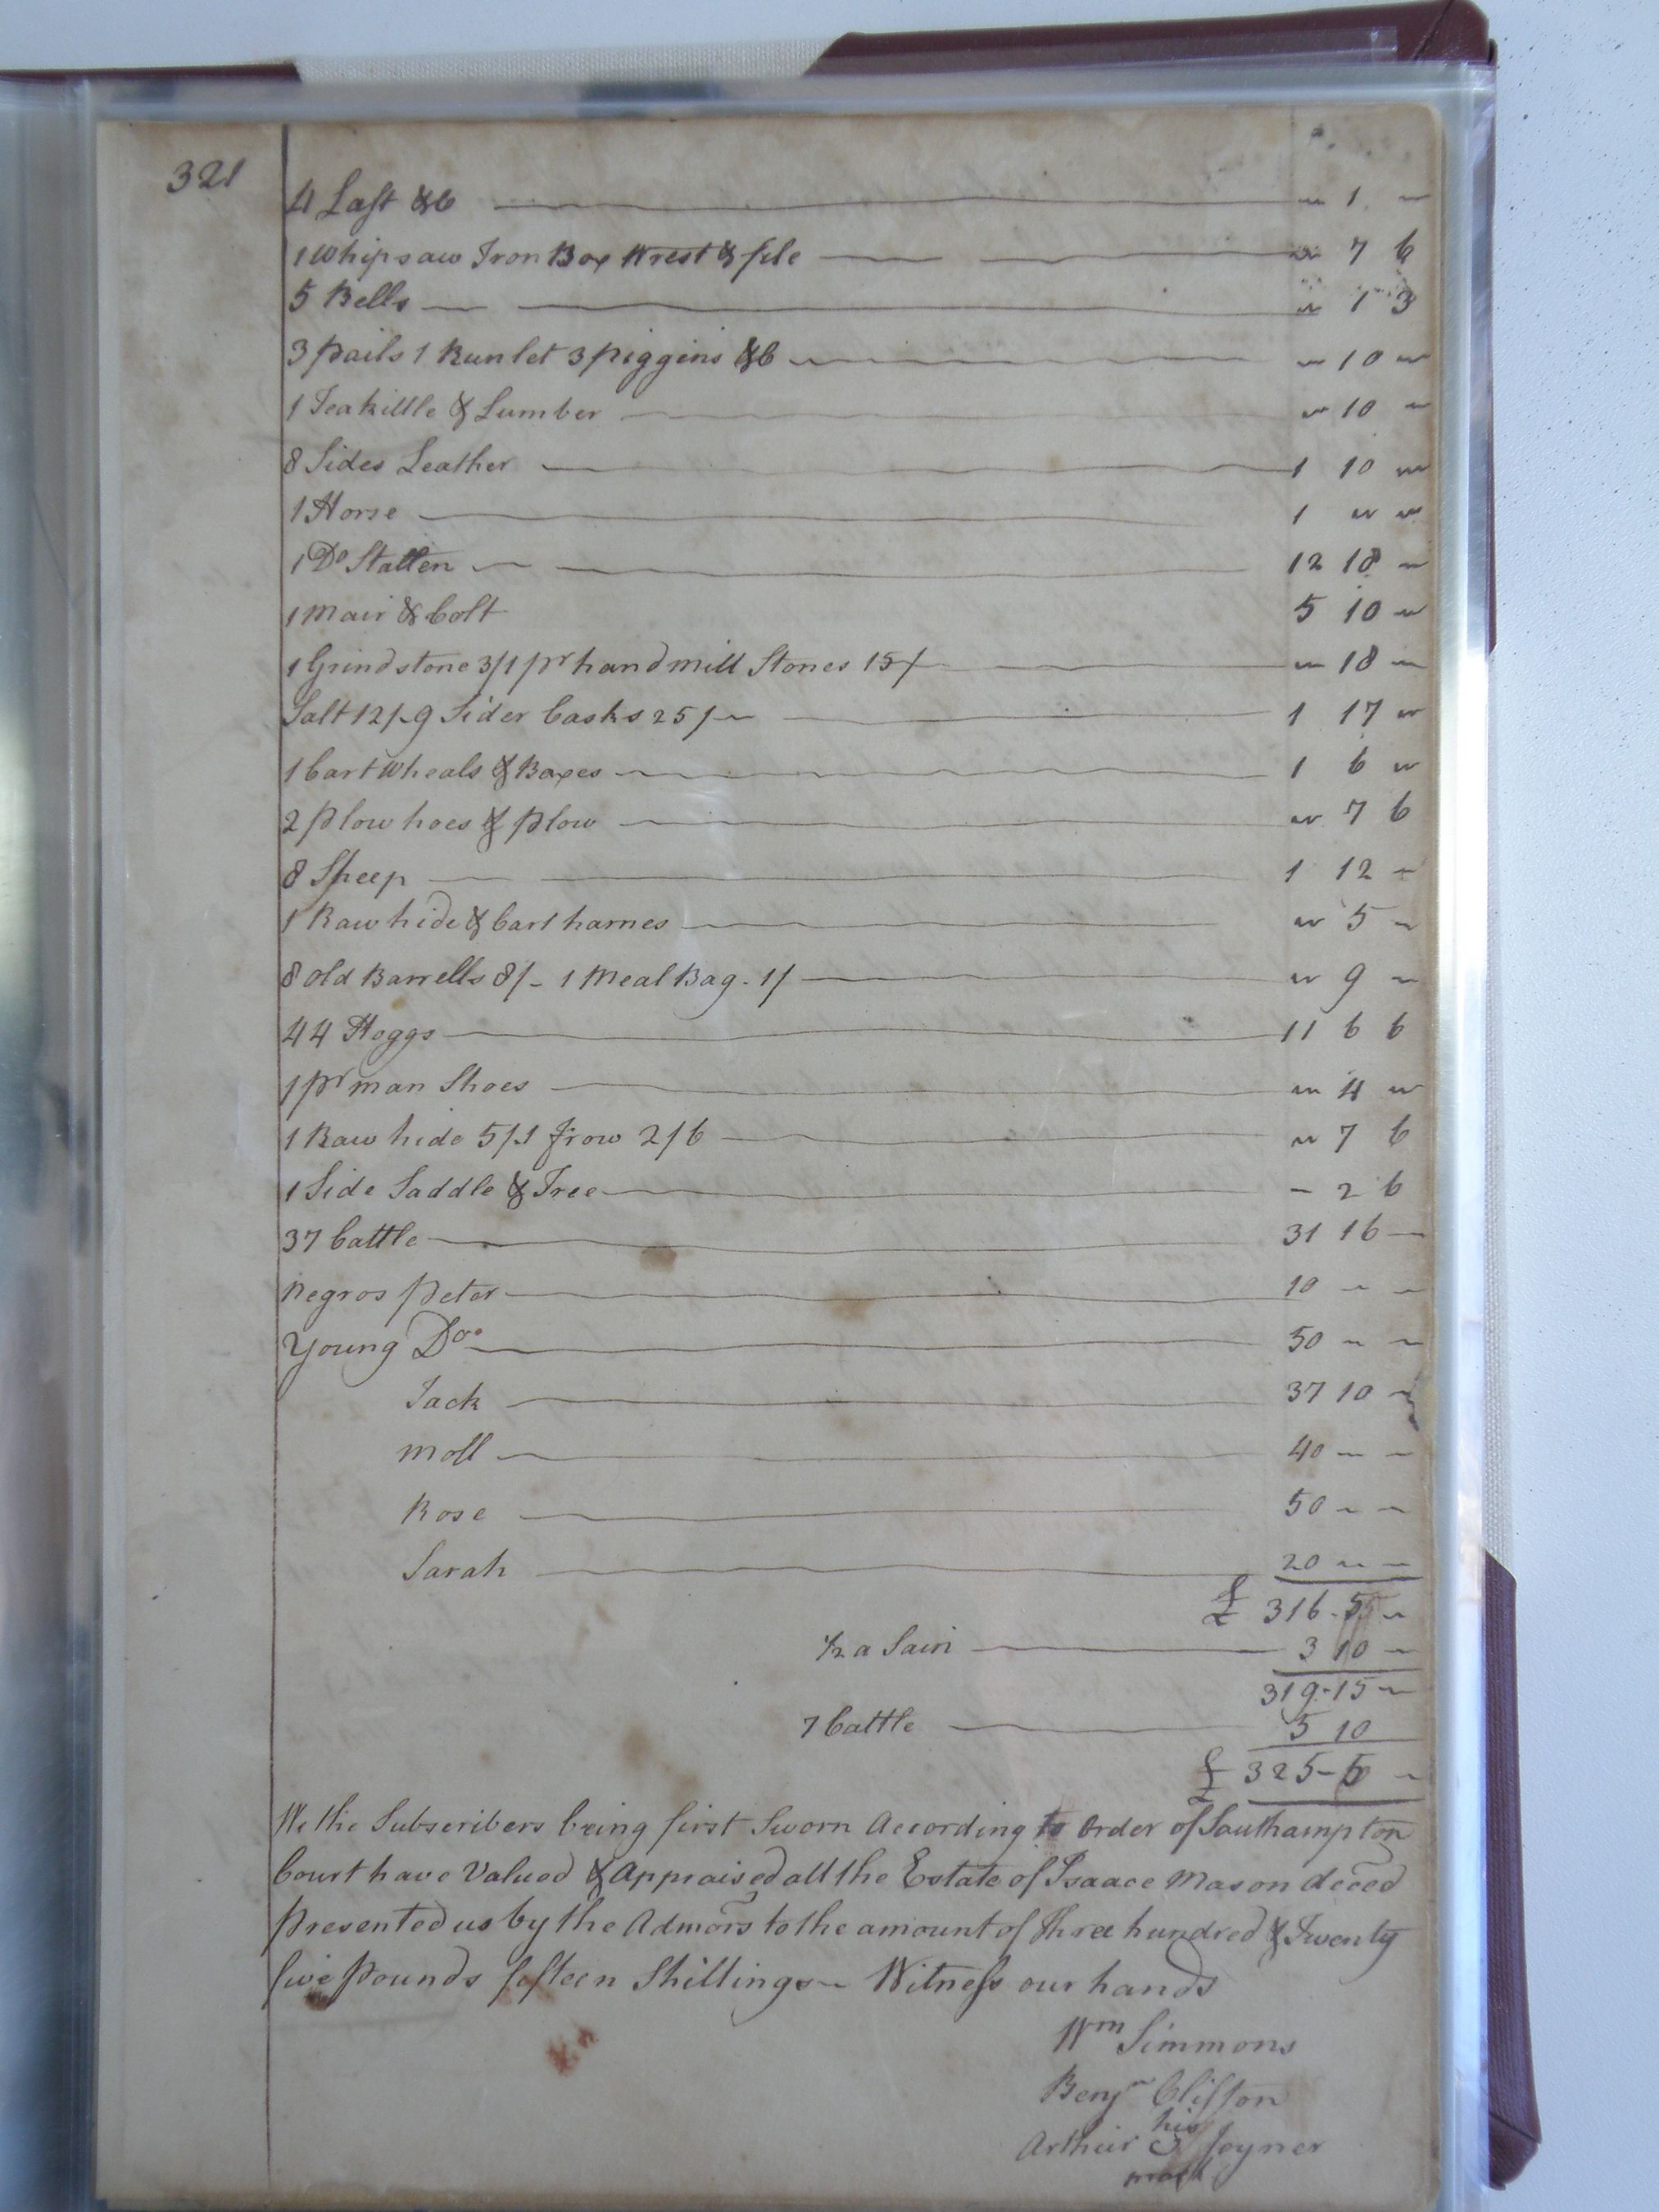 321
4 Last &C — " 1 "
1 Whipsaw Iron Box Wrest & file — " 7 6
5 Bells — " 1 3
3 pails 1 Runlet 3 piggins &C — " 10 "
1 Teakittle & Lumber — " 10 "
8 Sides Leather — 1 10 "
1 Horse — 1 " "
1 Do Stallen — 12 18 "
1 Mair & Colt 5 10 "
1 Grindstone 3/ 1 pr hand mill Stones 15/ — " 18 "
Salt 12/- 9 Sider Casks 25/ — 1 17 "
1 Cart Wheals & Boxes — 1 6 "
2 plow hoes & plow — " 7 6
8 Sheep — 1 12 "
1 Raw hide & Cart harnes — " 5 "
8 old Barrells 8/- 1 Meal Bag - 1/ — " 9 "
44 Hoggs — 11 6 6
1 pr man Shoes — " 4 "
1 Raw hide 5/ 1 frow 2/6 — " 7 6
1 Side Saddle & Tree — - 2 6
37 Cattle — 31 16 —
Negros peter — 10 " "
Young Do — 50 " "
Jack — 37 10 "
Moll — 40 " "
Rose — 50 " "
Sarah — 20 " "
£ 316 - 5 "
½ a Sain — 3 10 "
319 - 15 "
7 Cattle — 5 10
£ 325 - 5 "
We the Subscribers being first Sworn According to Order of Southampton
Court have Valued & Appraised all the Estate of Isaace Mason deced
Presented us by the Admors to the amount of three hundred & Twenty
five pounds fifteen Shillings — Witness our hands
Wm Simmons
Benjn Clifton
his
Arthur Joyner
mark